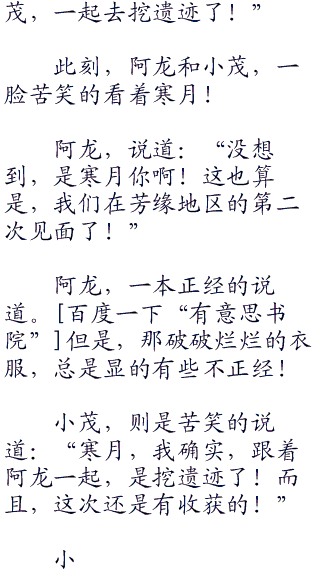 茂，一起去挖遗迹了！”
此刻，阿龙和小茂，一
脸苦笑的看着寒月！
阿龙，说道：“没想
到，是寒月你啊！这也算
是，我们在芳缘地区的第二
次见面了！”
阿龙，一本正经的说
道。[百度一下“有意思书
院”]但是，那破破烂烂的衣
服，总是显的有些不正经！
小茂，则是苦笑的说
道：“寒月，我确实，跟着
阿龙一起，是挖遗迹了！而
且，这次还是有收获的！”
小